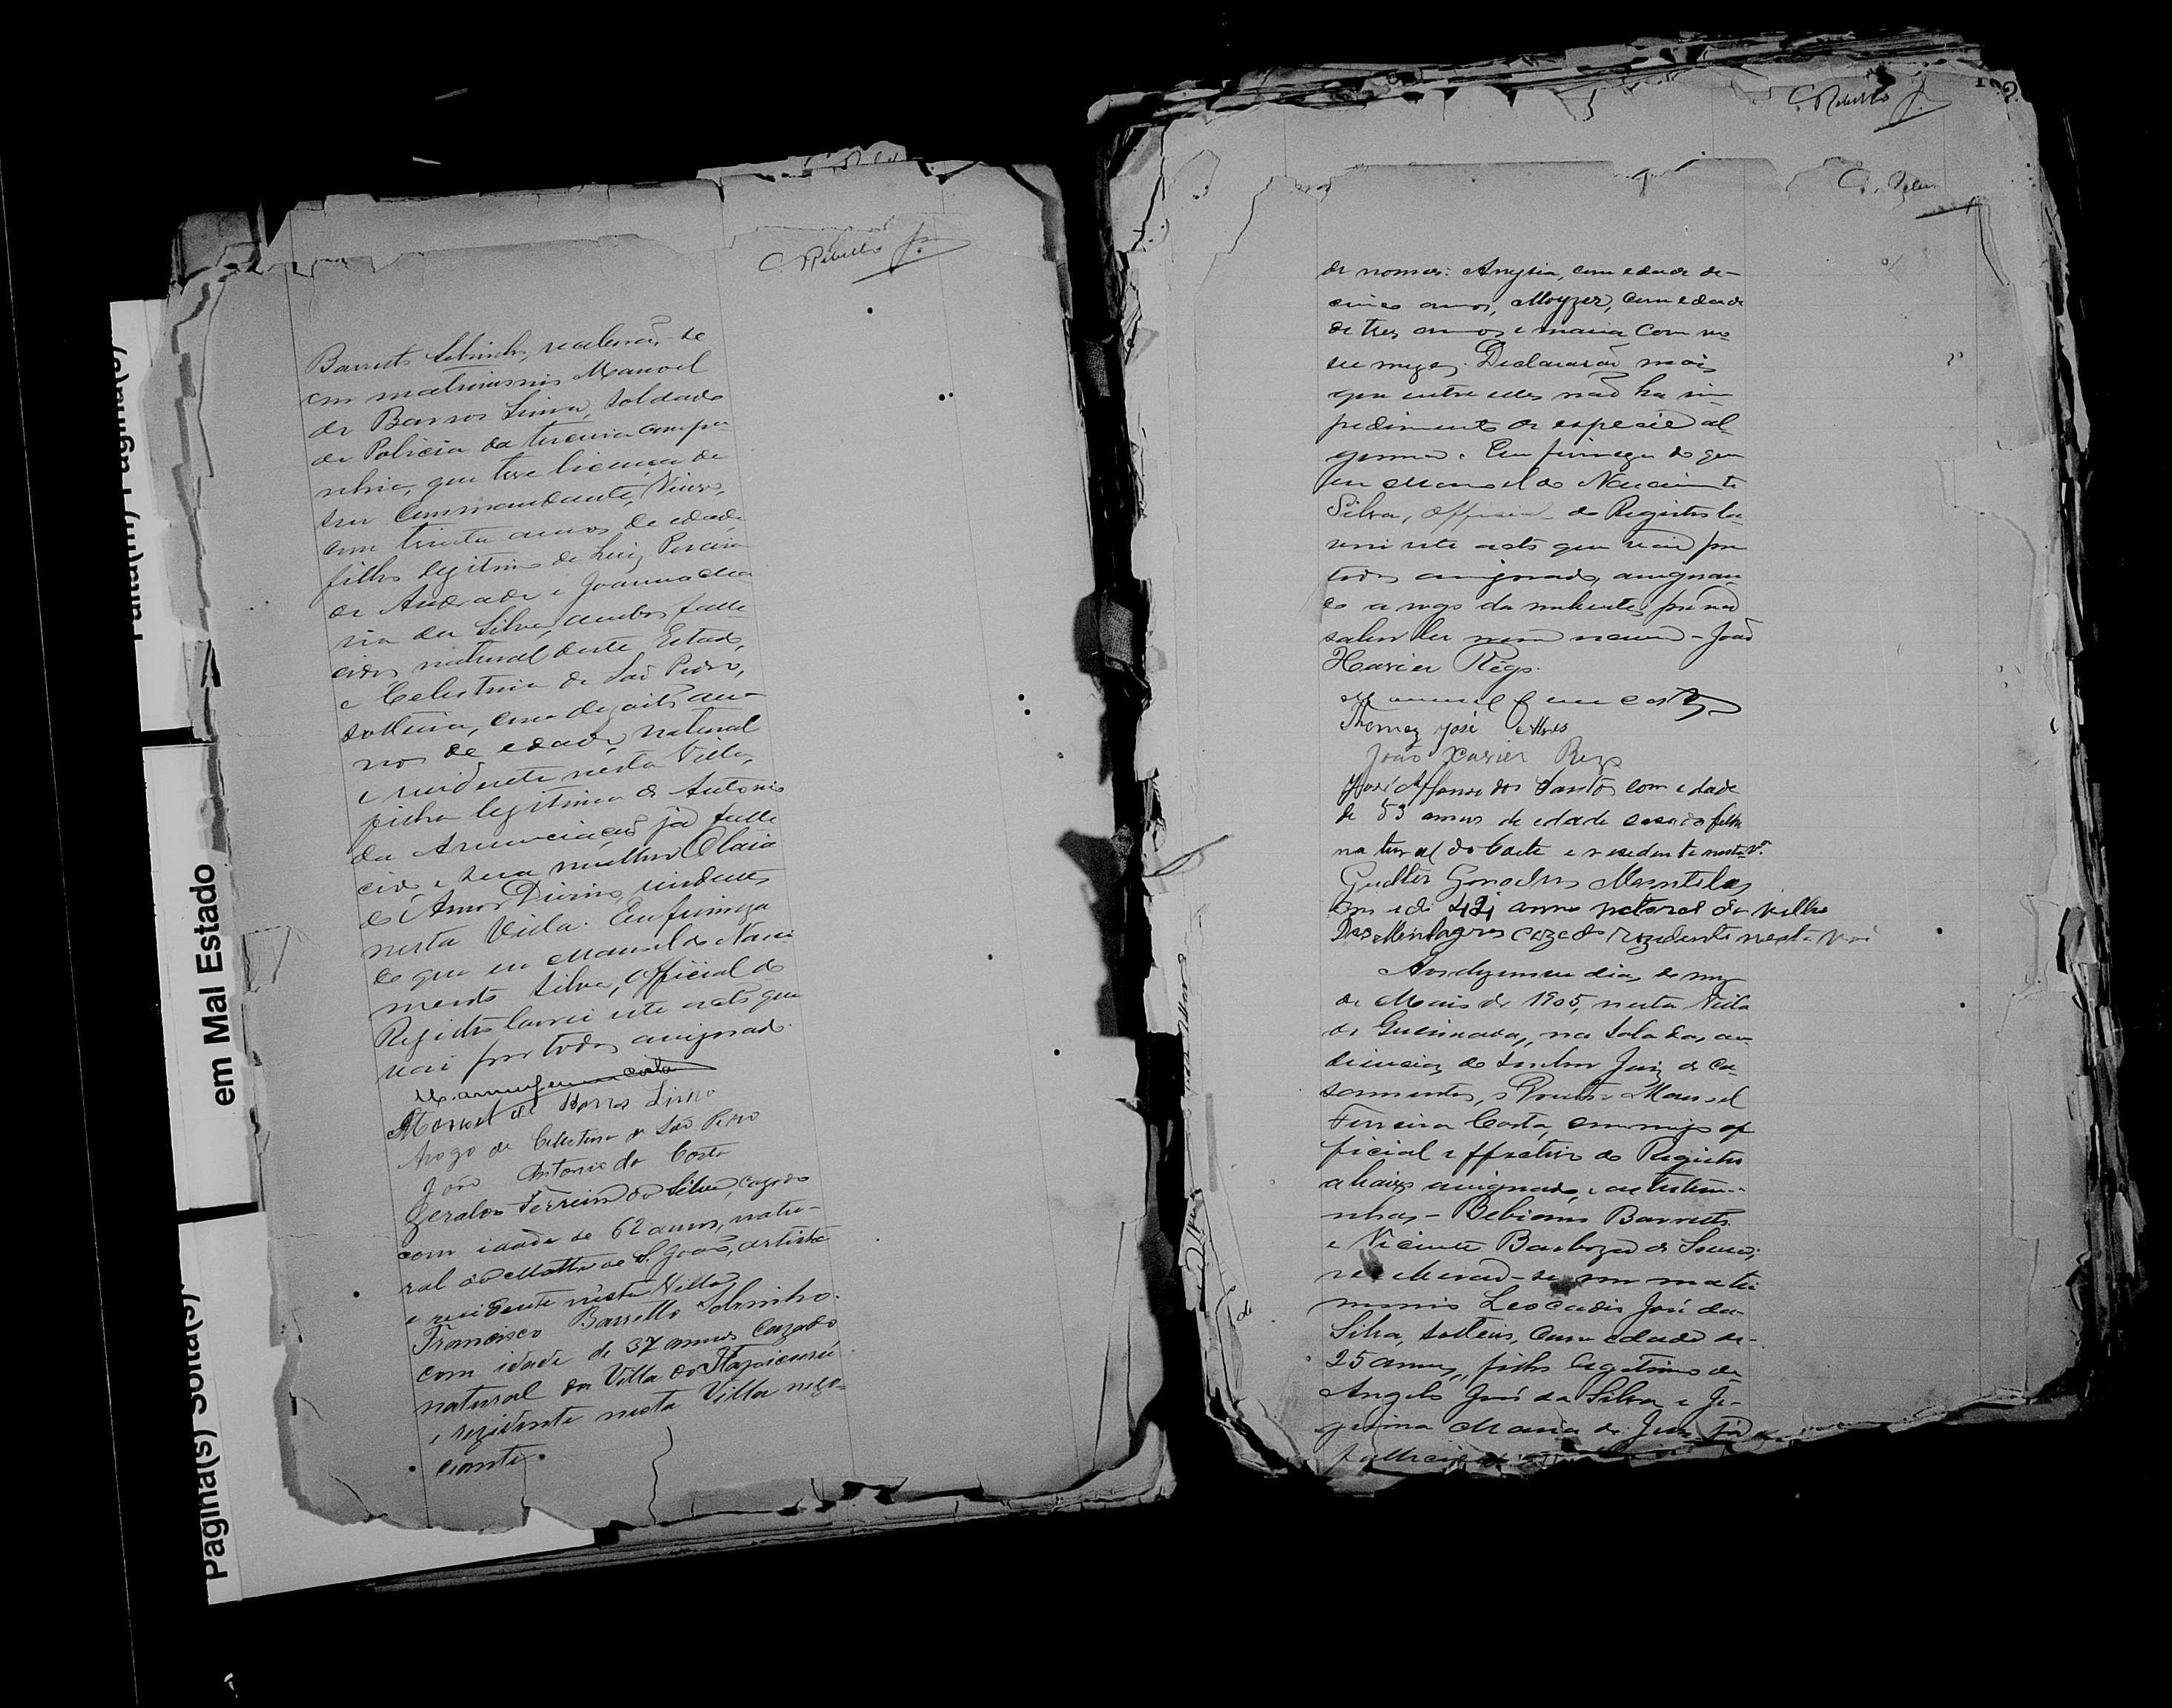 Falta(m) Página(s)
em Mal Estado
Página(s) Solta(s)
C. Rebello Jr.
Barreto Sobrinho, receberão-se
em matrimonio Manoel
de Barros Lima, soldado
de Policia da terceira compa
nhia, que teve licença de
seu Commandante, Viuvo,
com trinta annos de edade,
filho legitimo de Luiz Pereira
de Andrade e Joanna Ma
ria da Silva, ambos falle
cidos natural deste Estado,
e Celestina de São Pedro,
solteira, com dezoito an
nos de edade, natural
e residente nesta Villa,
filha legitima de Antonio
da Annunciação já falle
cido e sua mulher Claria
do Amor Divino, residente
nesta Villa. Em firmeza
do que eu Manoel do Nasci
mento Silva, official do
Registro lavrei este acto que
vai por todos assignado.
Manoel Ferreira Costa
Manoel de Barros Lima
Arogo de Celestina de São Pedro
João Antonio da Costa
Geraldo Ferreira da Silva, cazado
com idade de 62 annos, natu-
ral da Matta de S. João, artista
e residente nesta Villa
Francisco Barretto Sobrinho.
com idade de 37 annos Cazado
natural da Villa do Itapicurú
e rezidente nesta Villa nego-
ciante.
C. Rebello Jr.
de nomes: Anysia, com edade de
cinco annos, Moyzes, com edade
de tres annos e Maria com no
ve mezes. Declararão mais
que entre elles não ha im
pedimento de especie al
guma. Em firmeza do que
eu Manoel do Nascimento
Silva, official do Registro la
vrei este acto que vai por
todos assignado, assignan
do a rogo da nubente, por não
saber ler nem escrever - João
Xavier Rêgo.
Manoel Ferreira Costa
Thomaz José Alves
João Xavier Rego
José Affonso dos Santos com edade
de 53 annos de edade casado
natural do e residente nesta Vª
Gualter
annos natural da Villa
Dos Milagres cazado rezidente nesta Vª
Aos dezenove dias do mez
de Maio de 1905, nesta Villa
de Queimadas, na sala das au
diencias do senhor Juiz de Ca-
samentos, Manoel
Ferreira Costa, commigo of
ficial effectivo do Registro
abaixo assignado, e as testemu-
nhas - Bebiano Barreto
e Vicente Barboza de Souza,
receberão-se em matri
monio Leocadio José da
Silva, solteiro, com edade de
25 annos, filho legitimo de
Angelo José da Silva e Je-
Maria de Jesus já